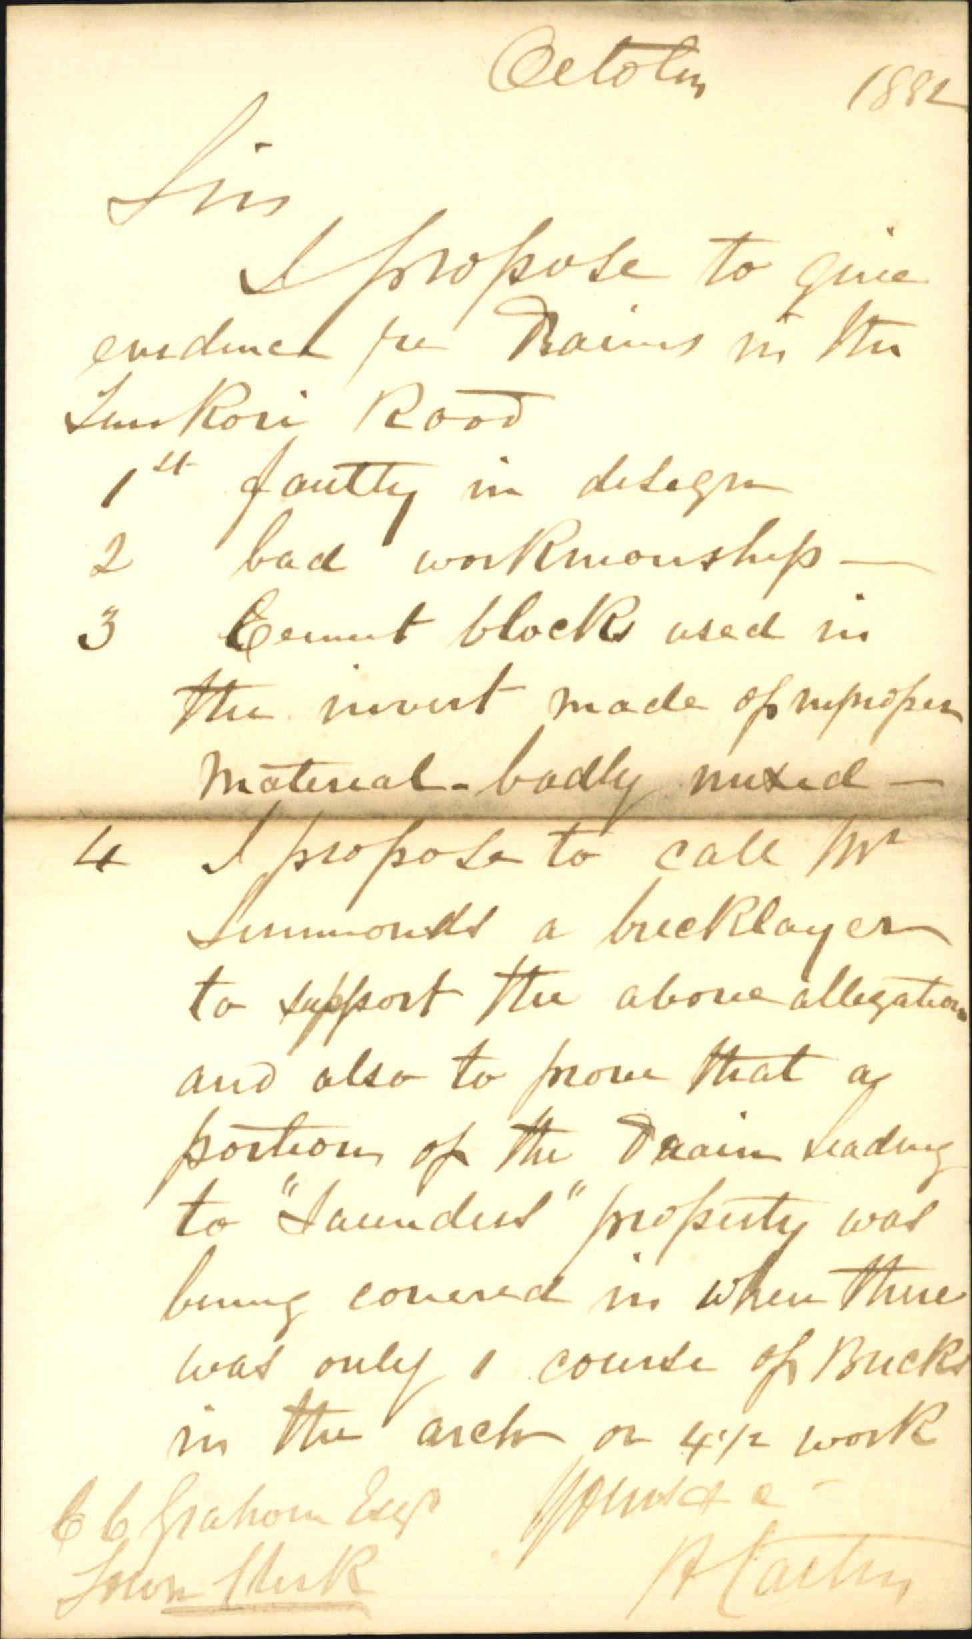 October 1882
Sir
I propose to give
evidence re Drains in the
Tinakori Road
1st faulty in design
2 bad workmanship —
3 Cement blocks used in
the invert made of improper
Material - badly mixed —
4 I propose to call Mr
Simmonds a bricklayer
to support the above allegations
and also to prove that a
portion of the Drain leading
to "Saunders" property was
being covered in when there
was only 1 course of Bricks
in the arch or 4 1/2 work
Yours &c -
C C Graham Esqr
Town Clerk